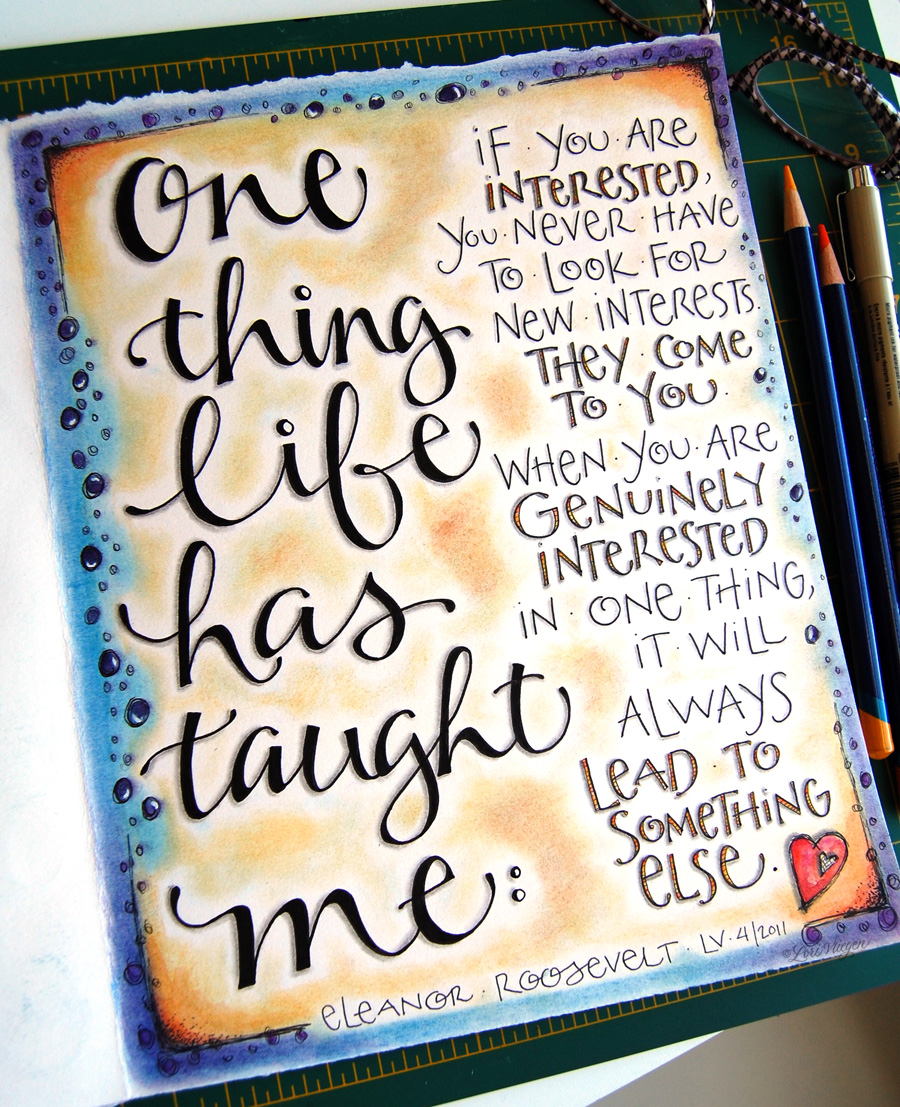 One
thing
life
has
taught
me:
iF · you · ARE
iNTERESTED,
you · NEVER · HAVE
TO · LOOK · FOR
NEW · iNTERESTS.
THEY · COME
TO · YOU.
WHEN · you · ARE
GENUiNELY
iNTERESTED
iN · ONE · THiNG,
iT · WiLL
ALWAYS
LEAD · TO
SOMETHiNG
ELSE.
eLEANOR · ROOSEVELT · LV · 4/2011
16
9